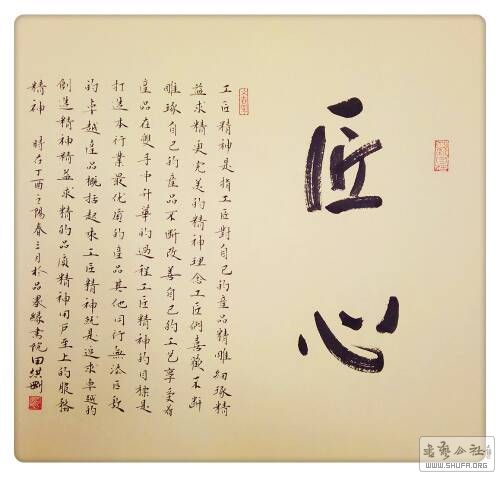 匠心
工匠精神是指工匠對自己的產品精雕細琢精
益求精更完美的精神理念工匠們喜歡不斷
雕琢自己的產品不斷改善自己的工艺享受着
產品在雙手中升華的過程工匠精神的目標是
打造本行業最优質的產品其他同行無法匹敵
的卓越產品概括起來工匠精神就是追求卓越的
創造精神精益求精的品质精神用戶至上的服務
精神 時在丁酉之陽春三月於品
書院田
书艺公社
WWW.SHUFA.ORG